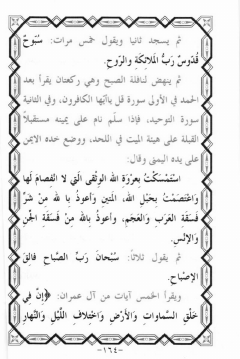 ثم يسجد ثانيا ويقول خمس مرات: سُبّوحٌ
قُدّوسٌ رَبُّ الملائكَةِ والرّوح.
ثم ينهض لنافلة الصبح وهي ركعتان يقرأ بعد
الحمد في الأولى سورة قل يا أيّها الكافرون، وفي الثانية
سورة التوحيد، فإذا سلّم نام على يمينه مستقبلاً
القبلة على هيئة الميت في اللحد، ووضع خده الايمن
على يده اليمنى وقال:
اسْتَمْسَكْتُ بِعُروَةِ الله الوُثْقى الّتي لا انْفِصامَ لَها
وَاعْتَصَمْتُ بِحَبْلِ الله، المَتينِ وَأعوذُ با لله مِنْ شَرِّ
فَسَقَةِ العَرَبِ وَالعَجَمِ، وأعوذُ بالله مِنْ شَرِّ فَسَقَةِ الجِنِّ
وَالإنْسِ.
ثم يقول ثلاثاً: سُبْحانَ رَبِّ الصَّباحِ فالقِ
الإصْباحِ.
ويقرأ الخمس آيات من آل عمران: ﴿إنَّ فِي
خَلْقِ السَّماواتِ وَالأَرْضِ وَاخْتِلافِ اللَّيْلِ وَالنَّهارِ
-١٦٤-